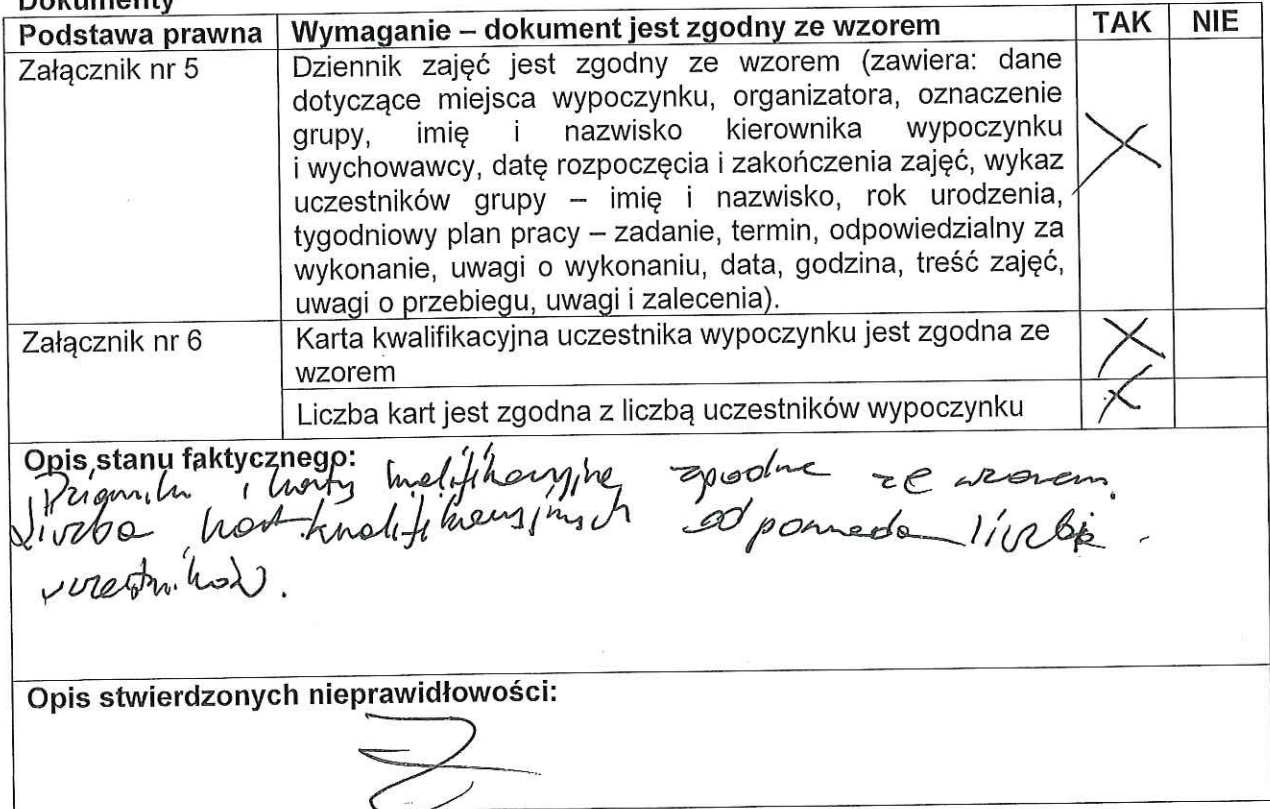 Dokumenty
Podstawa prawna Wymaganie – dokument jest zgodny ze wzorem TAK NIE
Załącznik nr 5
Dziennik zajęć jest zgodny ze wzorem (zawiera: dane
dotyczące miejsca wypoczynku, organizatora, oznaczenie
grupy, imię i nazwisko kierownika wypoczynku
i wychowawcy, datę rozpoczęcia i zakończenia zajęć, wykaz
uczestników grupy – imię i nazwisko, rok urodzenia,
tygodniowy plan pracy – zadanie, termin, odpowiedzialny za
wykonanie, uwagi o wykonaniu, data, godzina, treść zajęć,
uwagi o przebiegu, uwagi i zalecenia).
X
Załącznik nr 6
Karta kwalifikacyjna uczestnika wypoczynku jest zgodna ze
wzorem
X
Liczba kart jest zgodna z liczbą uczestników wypoczynku X
Opis stanu faktycznego:
Dzienniki i karty kwalifikacyjne zgodne ze wzorem.
Liczba kart kwalifikacyjnych odpowiada liczbie
uczestników.
Opis stwierdzonych nieprawidłowości: